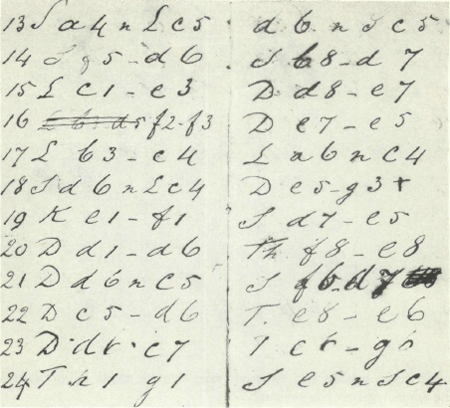 13 S a4 n L c5 d6 n S c5
14 S g5 - d6 S b8 - d7
15 L c1 - e3 D d8 - e7
16 f2 - f3 D e7 - e5
17 L b3 - c4 L a6 n c4
18 S d6 n L c4 D e5 - g3 +
19 K e1 - f1 S d7 - e5
20 D d1 - d6 Th f8 - e8
21 D d6 n c5 S f6 d7
22 D c5 - d6 T. e8 - e6
23 D d6 - c7 T c6 - g6
24 T h1 g1 S e5 n S c4